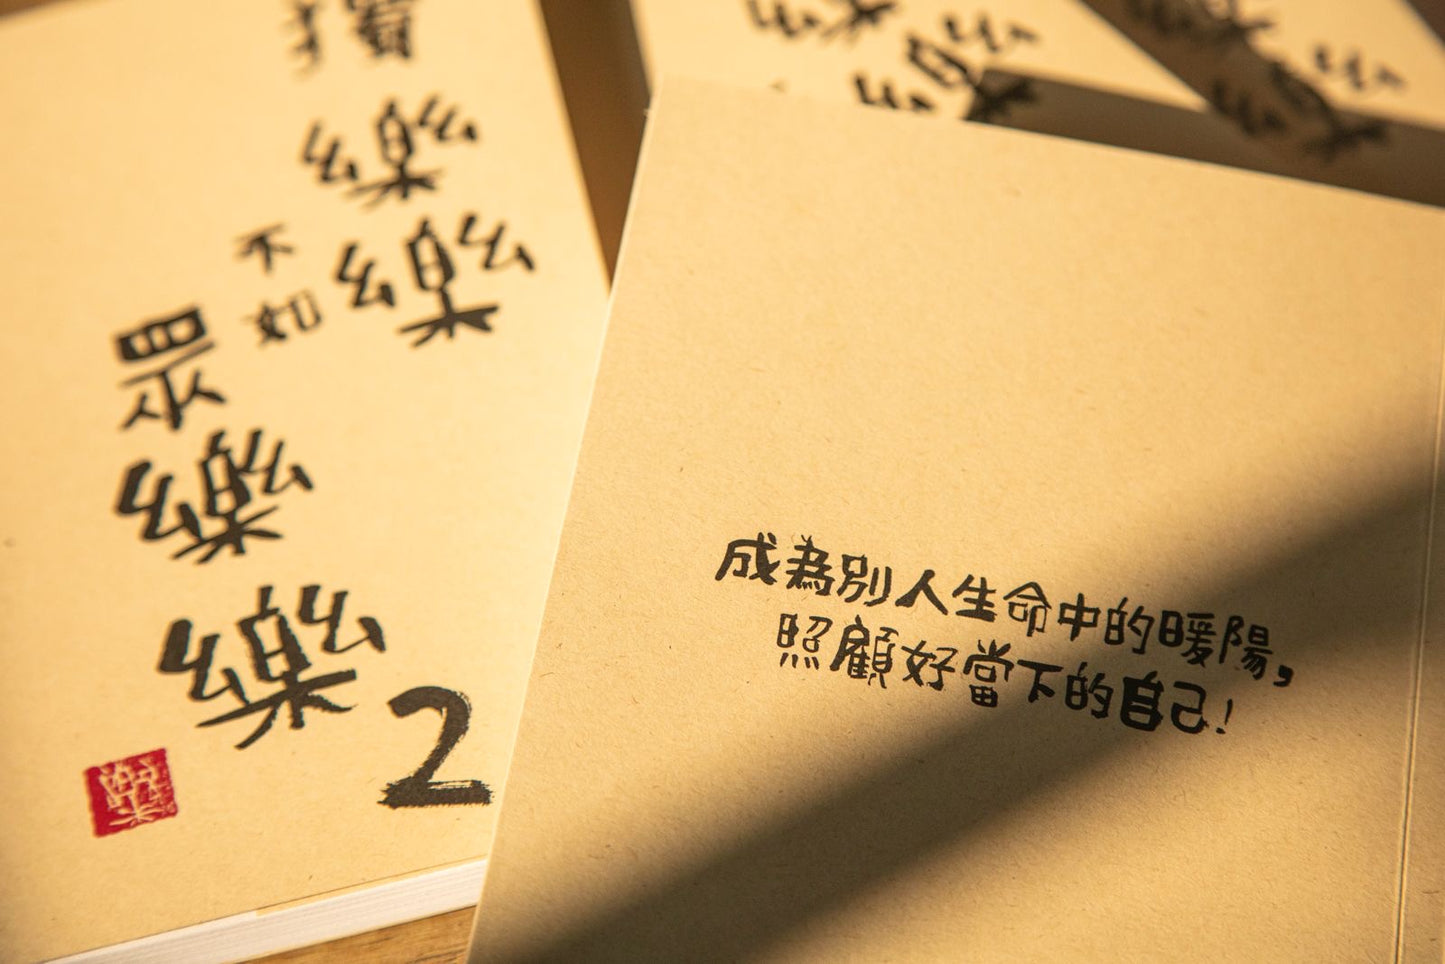 樂樂
不如
眾樂樂
2
成為別人生命中的暖陽,
照顧好當下的自己!